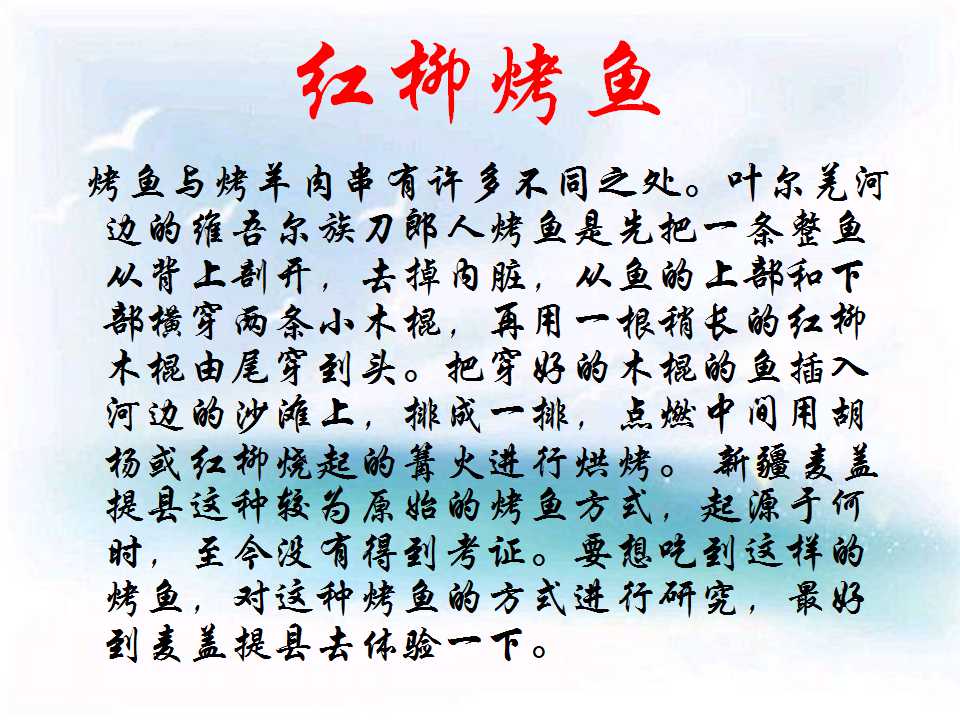 红柳烤鱼
烤鱼与烤羊肉串有许多不同之处。叶尔羌河
边的维吾尔族刀郎人烤鱼是先把一条整鱼
从背上剖开，去掉内脏，从鱼的上部和下
部横穿两条小木棍，再用一根稍长的红柳
木棍由尾穿到头。把穿好的木棍的鱼插入
河边的沙滩上，排成一排，点燃中间用胡
杨或红柳烧起的篝火进行烘烤。 新疆麦盖
提县这种较为原始的烤鱼方式，起源于何
时，至今没有得到考证。要想吃到这样的
烤鱼，对这种烤鱼的方式进行研究，最好
到麦盖提县去体验一下。